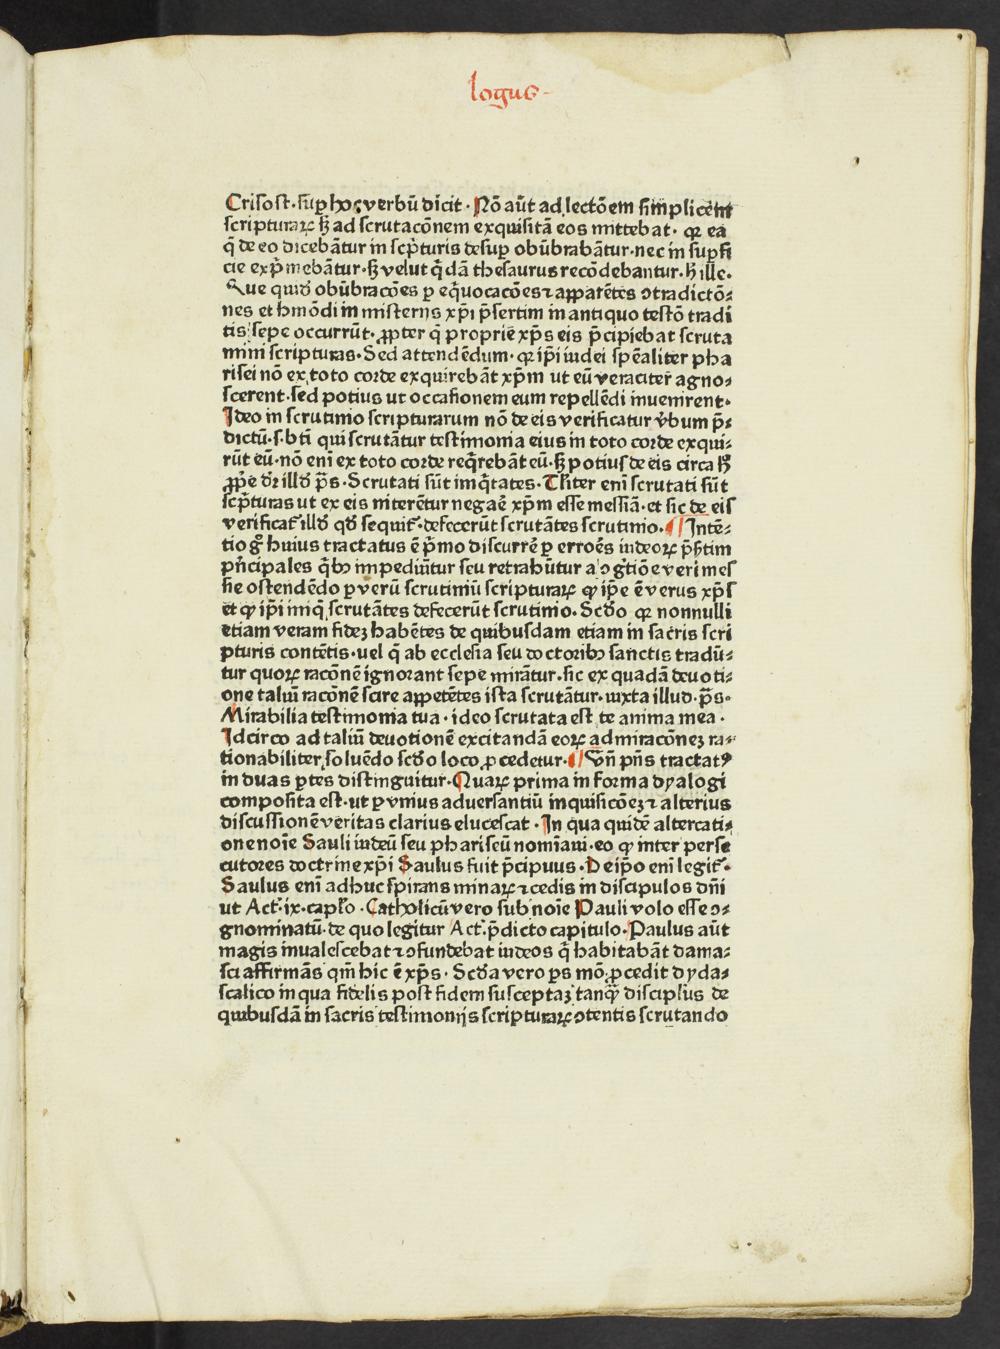 logus
Crisost. suꝑ hoc verbū dicit. Nō aūt ad lectōem simplicem
scripturaꝝ sꝫ ad scrutacōnem exquisitā eos mittebat. qꝛ ea
q̄ de eo dicebātur in scp̄turis desuꝑ obūbrabātur. nec in suꝑfi
cie exp̄mebātur. sꝫ velut q̄dā thesaurus recōdebantur. h̄ ille.
Que quid obūbracōes ꝑ eq̄uocacōes ⁊ apparētes ꝯtradictō⸗
nes et hmōdi in misterijs xp̄i p̄sertim in antiquo testō tradi
tis sepe occurrūt. ꝓpter q̄ proprie xp̄s eis p̄cipiebat scruta
mini scripturas. Sed attendēdum. qꝛ ip̄i iudei spēaliter pha
risei nō ex toto corde exquirebāt xp̄m ut eū veraciter agno⸗
scerent. sed potius ut occasionem eum repellēdi inuenirent.
Ideo in scrutinio scripturarum nō de eis verificatur v̄bum p̄⸗
dictū. s. bt̄i qui scrutātur testimonia eius in toto corde exqui⸗
rūt eū. nō eni ex toto corde req̄rebāt eū. sꝫ potius de eis circa h̄
ꝓp̄e dr̄ illd p̄s. Scrutati sūt iniq̄tates. Tlīter eni scrutati sūt
scp̄turas ut ex eis niterētur negare xp̄m esse messiā. et sic de eis
verificat̄ illd qd sequit̄. defecerūt scrutātes scrutinio. ¶ Intē⸗
tio gͦ huius tractatus ē p̄mo discurrē ꝑ errores iudeoꝝ p̄sertim
pn̄cipales q̄bꝫ impediūtur seu retrahūtur a ꝯgtiōe veri mes
sie ostendēdo ꝑ verū scrutiniū scripturaꝝ ꝙ ip̄e ē verus xp̄s
et ꝙ ip̄i iniq̄ scrutātes defecerūt scrutinio. Scdo qꝛ nonnulli
etiam veram fidez habētes de quibusdam etiam in sacris scri
pturis contētis. vel q̄ ab ecclesia seu doctoribꝫ sanctis tradū⸗
tur quoꝝ racōnē ignorant sepe mirātur. sic ex quadā deuoti⸗
one taliū racōnē scire appetētes ista scrutātur. iuxta illud. p̄s.
Mirabilia testimonia tua. ideo scrutata est te anima mea.
Idcirco ad taliū deuotionē excitandā eoꝝ admiracōnez ra⸗
tionabiliter soluēdo scdo loco ꝓcedetur. ¶ Vn̄ pn̄s tractatꝰ
in duas ꝑtes distinguitur. Quaꝝ prima in forma dyalogi
composita est. ut ꝑ vnius aduersantiū inquisicōez ⁊ alterius
discussionē veritas clarius elucescat. In qua quidē altercati⸗
one noīe Sauli iudeū seu phariseū nomīaui. eo ꝙ inter perse
cutores doctrine xp̄i Saulus fuit p̄cipuus. De ip̄o eni legit̄.
Saulus eni adhuc spirans minaꝝ ⁊ cedis in discipulos dn̄i
ut Act. ix. caplō. Catholicū vero sub noīe Pauli volo esse ꝯ⸗
gnominatū. de quo legitur Act. p̄dicto capitulo. Paulus aūt
magis inualescebat ⁊ ꝯfundebat iudeos q̄ habitabāt dama⸗
sci affirmās qm̄ hic ē xp̄s. Scda vero ps mō ꝓcedit dyda⸗
scalico in qua fidelis post fidem susceptaz tanq̄ disciplūs de
quibusdā in sacris testimonijs scripturaꝝ ꝯtentis scrutando